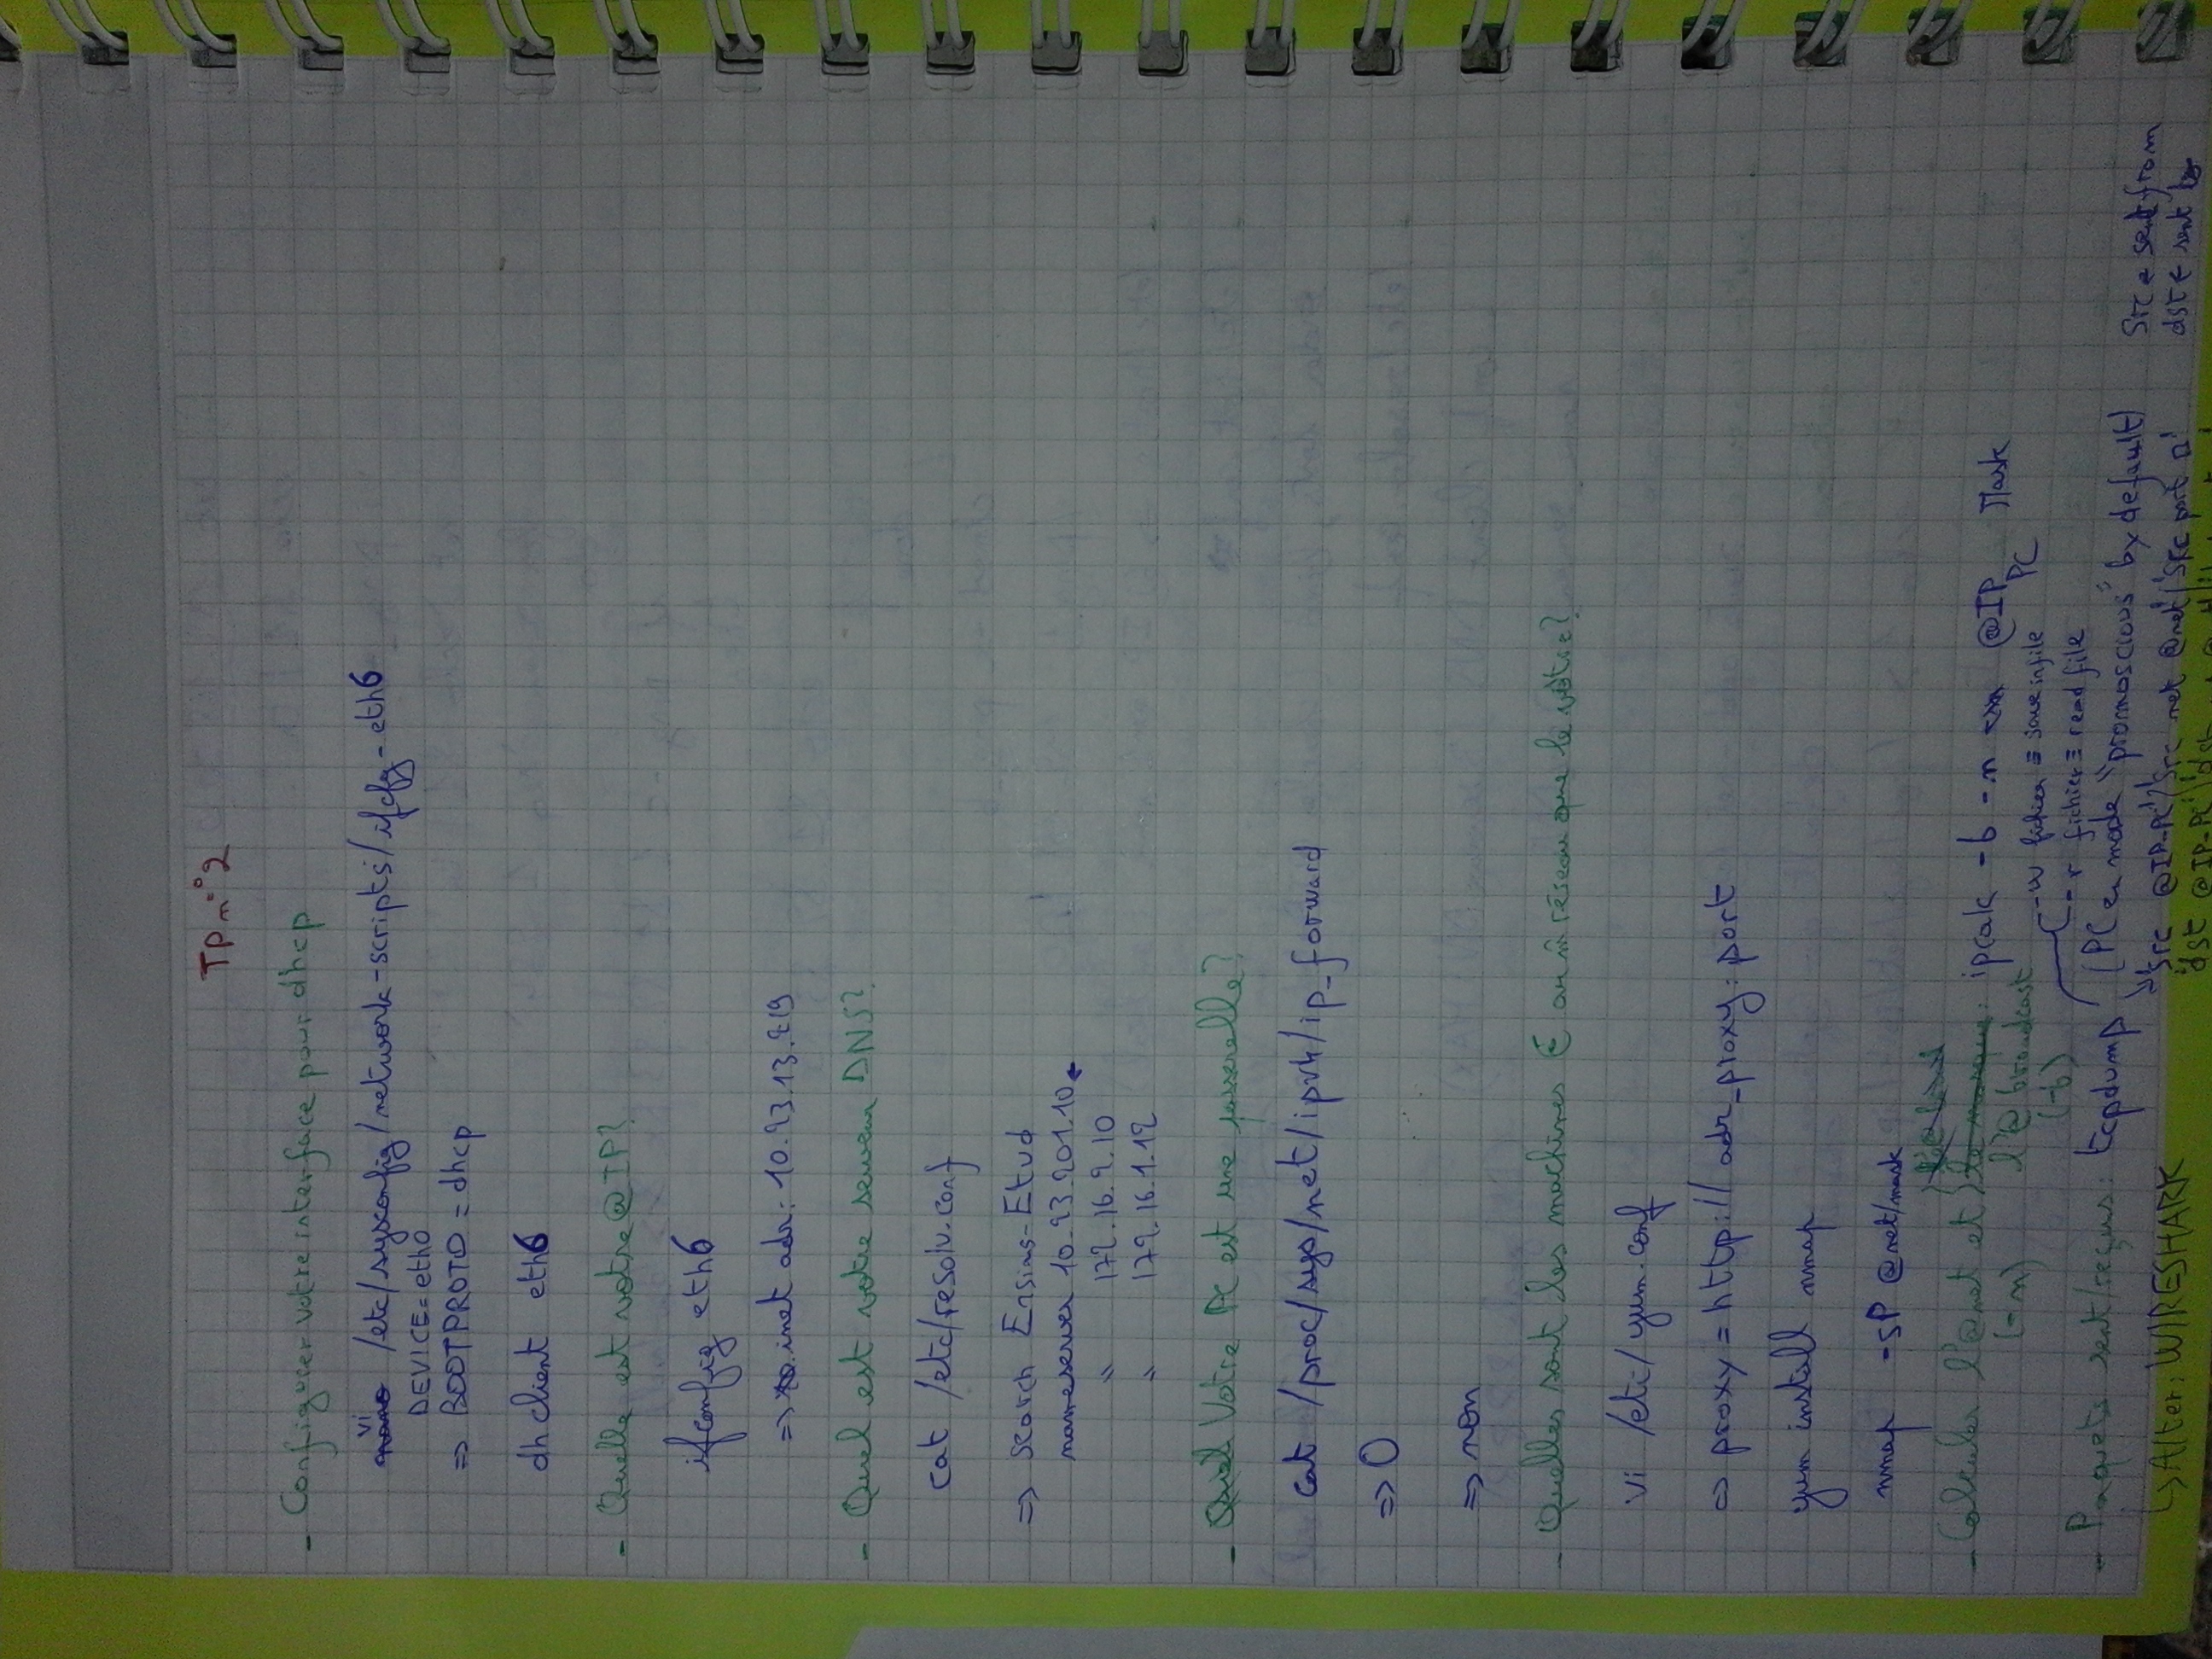 TP n° 2
- Configurer votre interface pour dhcp
vi /etc/sysconfig/network-scripts/ifcfg-eth6
DEVICE=eth0
=> BOOTPROTO = dhcp
dhclient eth6
- Quelle est votre @IP?
ifconfig eth6
=> inet adr: 10.23.13.219
- Quel est votre serveur DNS?
cat /etc/resolv.conf
=> search Ensias-Etud
nameserver 10.23.201.10 ←
" 172.16.2.10
" 172.16.1.12
- Votre PC est une passerelle?
cat /proc/sys/net/ipv4/ip_forward
=> 0
=> non
- Quelles sont les machines ∈ au m̂ réseau que le vôtre?
vi /etc/yum.conf
=> proxy = http://adr_proxy:port
yum install nmap
nmap -sP @net/mask
- Calculer l'@net et : ipcalc -b -n @IP PC Mask
(-n) l'@ broadcast
(-b)
-w fichier ≡ save in file
-r fichier ≡ read file
- Paquets sent/reçus: tcpdump (PC en mode "promoscious" by default)
↳ Alter: WIRESHARK
'src @IP-PC'/'src net @net'/'src port n'
src ← sent from
dst ← sent to
'dst @IP-PC'